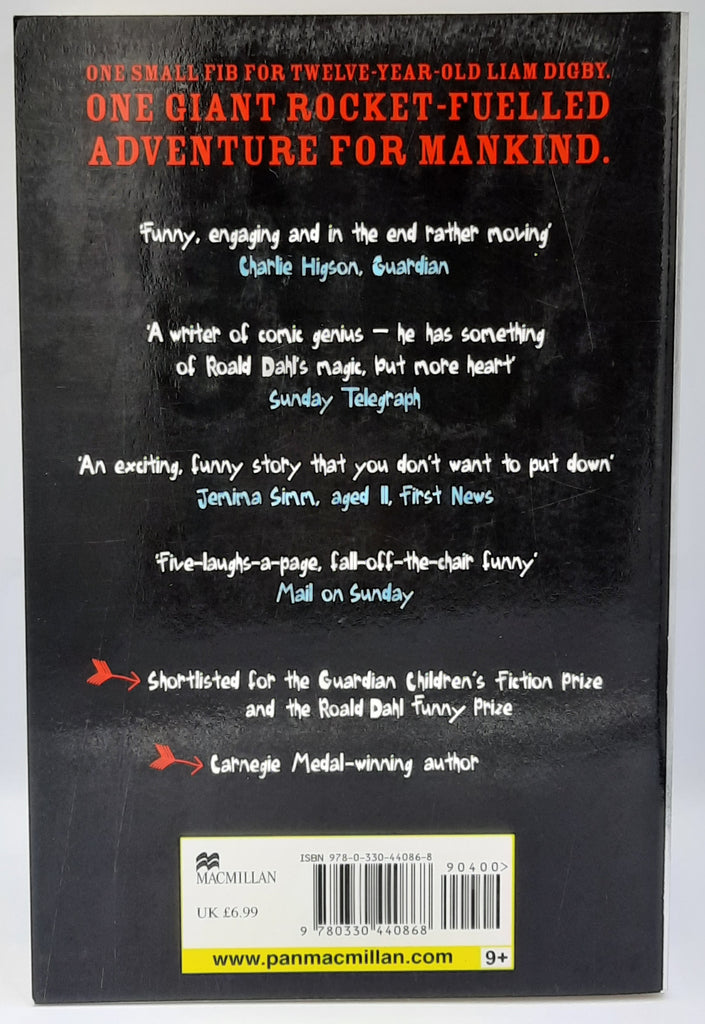 ONE SMALL FIB FOR TWELVE-YEAR-OLD LIAM DIGBY.
ONE GIANT ROCKET-FUELLED
ADVENTURE FOR MANKIND.
'Funny, engaging and in the end rather moving'
Charlie Higson, Guardian
'A writer of comic genius – he has something
of Roald Dahl's magic, but more heart'
Sunday Telegraph
'An exciting, funny story that you don't want to put down'
Jemima Simm, aged 11, First News
'Five-laughs-a-page, fall-off-the-chair funny'
Mail on Sunday
Shortlisted for the Guardian Children's Fiction Prize
and the Roald Dahl Funny Prize
Carnegie Medal-winning author
ISBN 978-0-330-44086-8
90400>
MACMILLAN
UK £6.99
9 780330 440868
www.panmacmillan.com 9+